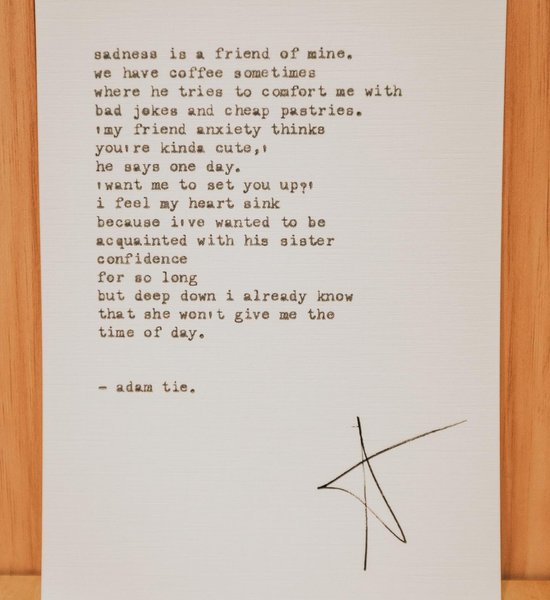 sadness is a friend of mine.
we have coffee sometimes
where he tries to comfort me with
bad jokes and cheap pastries.
'my friend anxiety thinks
you're kinda cute,'
he says one day.
'want me to set you up?'
i feel my heart sink
because i've wanted to be
acquainted with his sister
confidence
for so long
but deep down i already know
that she won't give me the
time of day.
- adam tie.